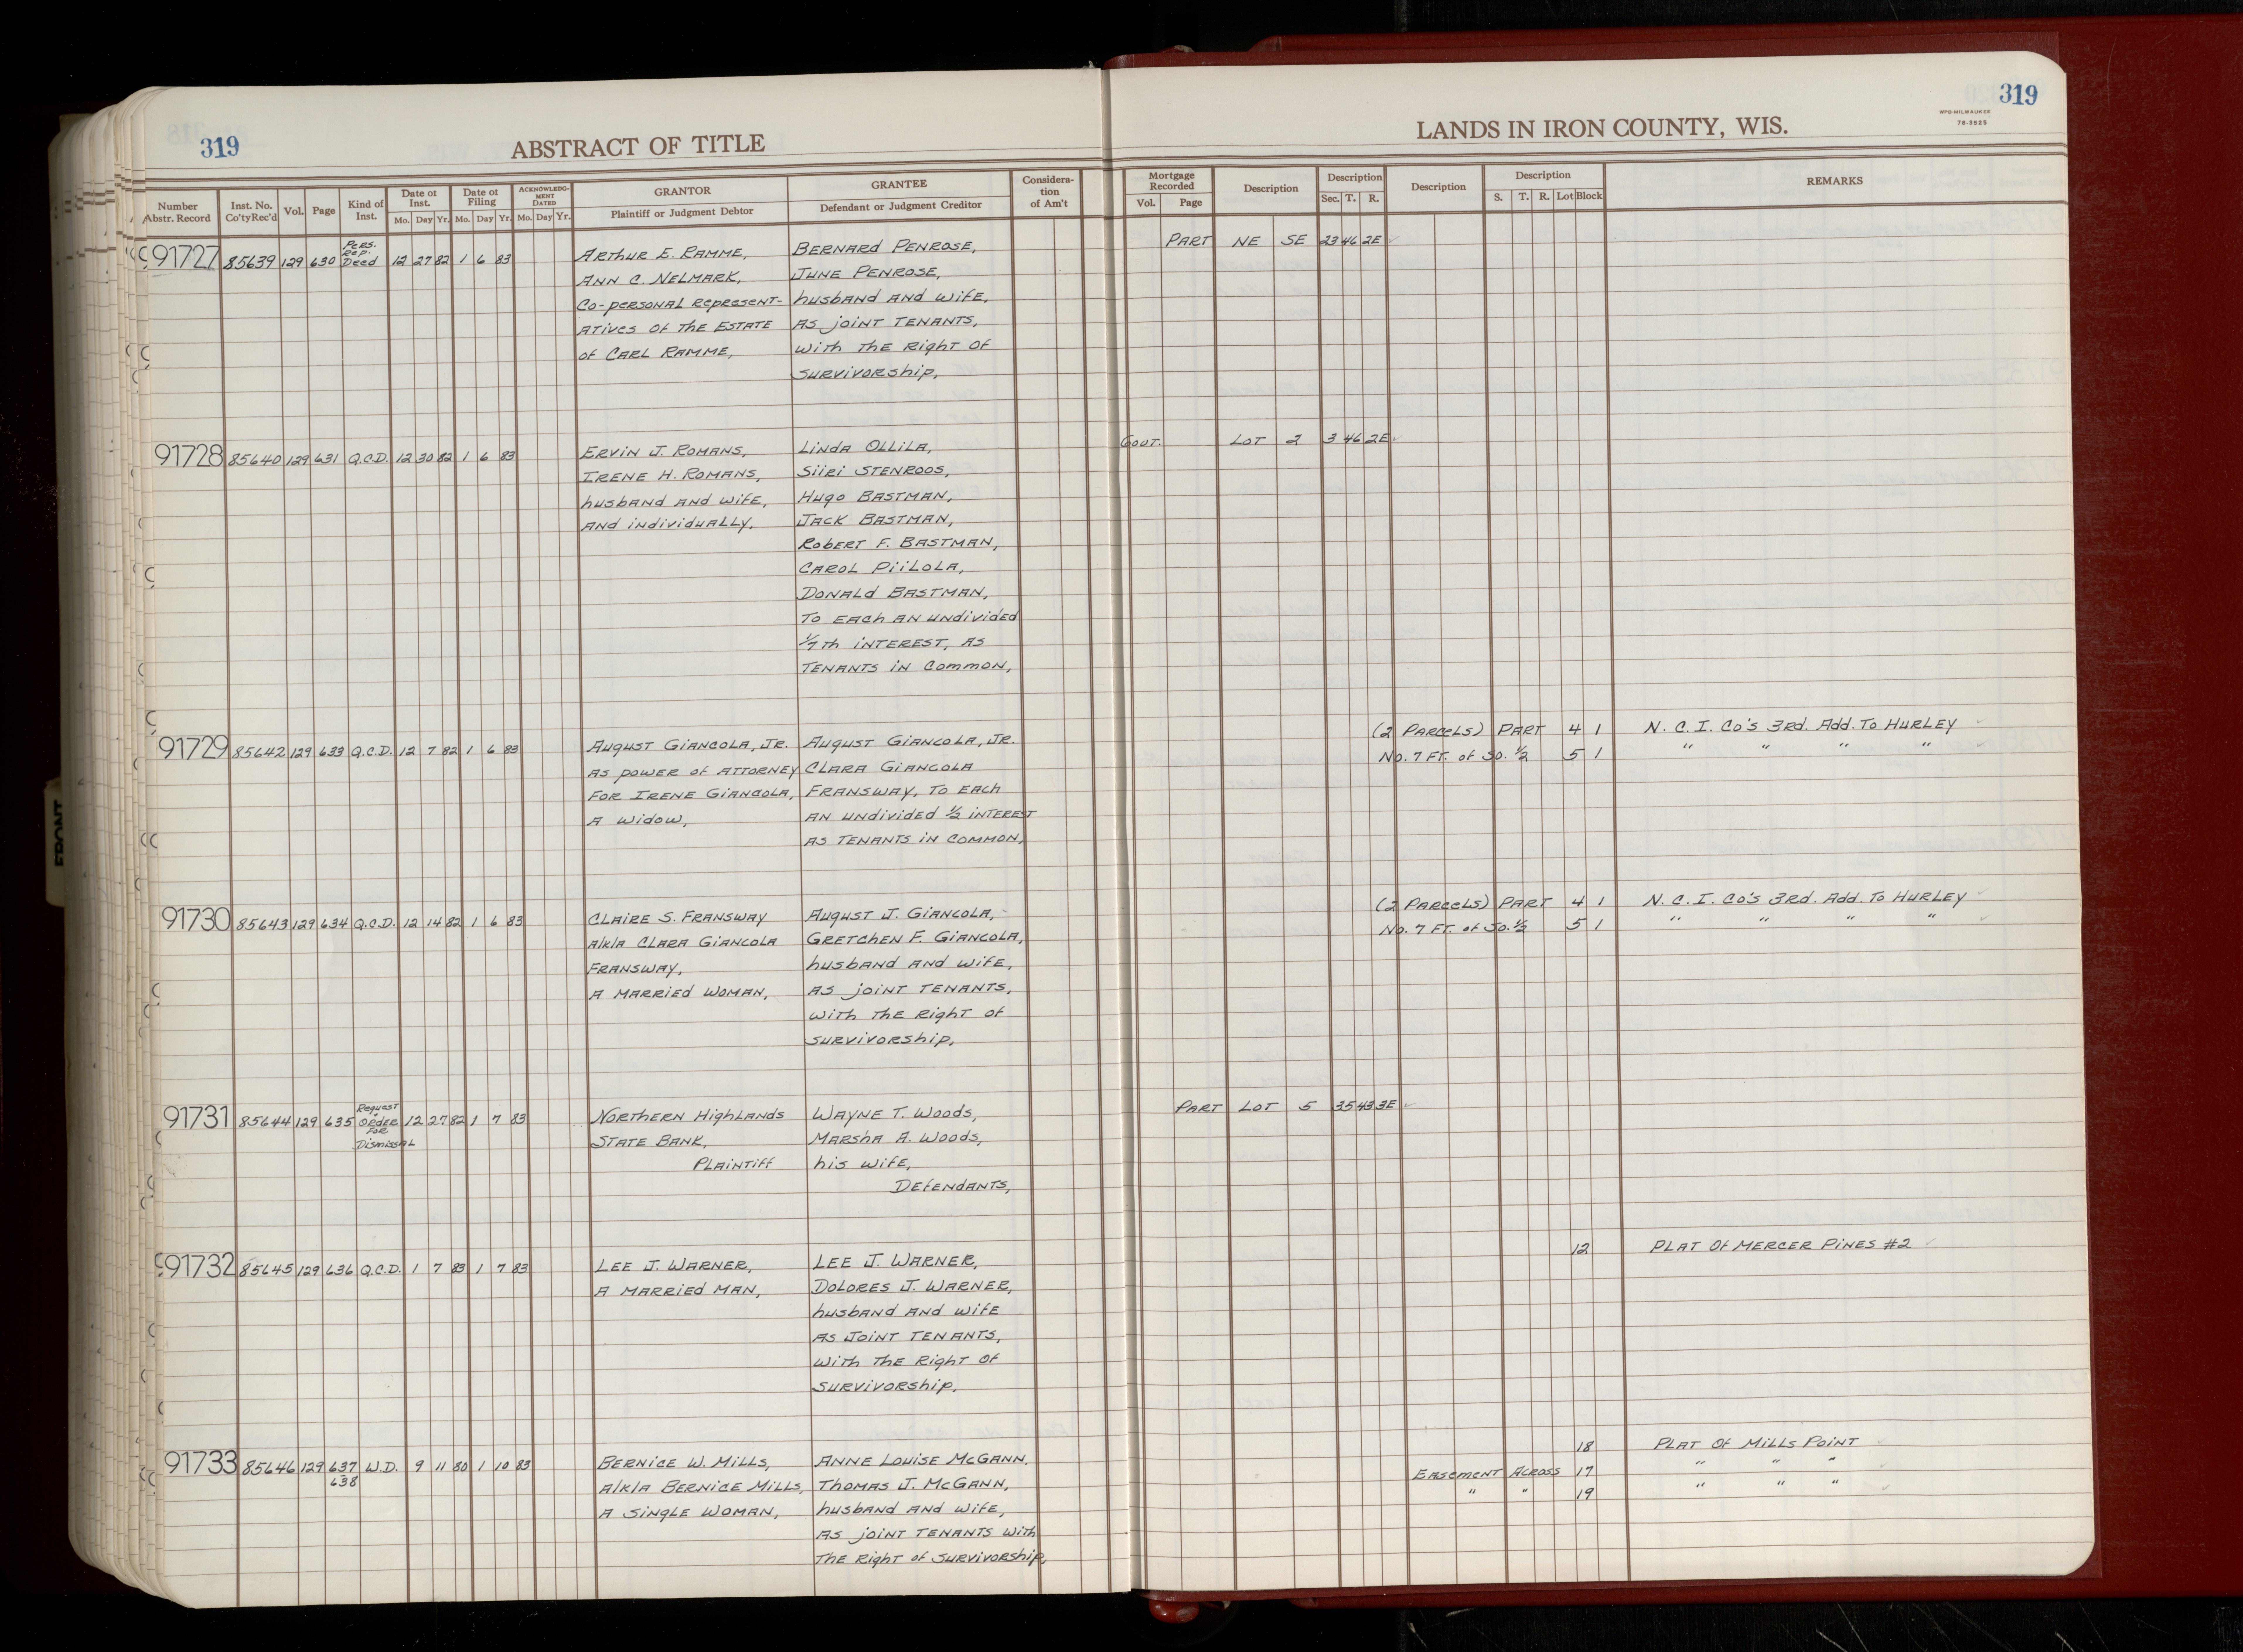 319
ABSTRACT OF TITLE
LANDS IN IRON COUNTY, WIS.
WPB-MILWAUKEE
78-3525
319
Number Abstr. Record | Inst. No. Co'ty Rec'd | Vol. | Page | Kind of Inst. | Date of Inst. Mo. Day Yr. | Date of Filing Mo. Day Yr. | ACKNOWLEDGMENT DATED Mo. Day Yr. | GRANTOR Plaintiff or Judgment Debtor | GRANTEE Defendant or Judgment Creditor | Consideration of Am't | Mortgage Recorded Vol. Page | Description | Description Sec. T. R. | Description | Description S. T. R. Lot Block | REMARKS
91727 85639 129 630 Pers. Rep. Deed 12 27 82 1 6 83 Arthur E. Ramme, Bernard Penrose, Part NE SE 23 46 2E
Ann C. Nelmark, June Penrose,
Co-personal represent- husband and wife,
atives of the Estate as joint tenants,
of Carl Ramme, with the right of
survivorship,
91728 85640 129 631 Q.C.D. 12 30 82 1 6 83 Ervin J. Romans, Linda Ollila, Gout. Lot 2 3 46 2E
Irene H. Romans, Siiri Stenroos,
husband and wife, Hugo Bastman,
and individually, Jack Bastman,
Robert F. Bastman,
Carol Piilola,
Donald Bastman,
to each an undivided
1/7th interest, as
tenants in common,
91729 85642 129 633 Q.C.D. 12 7 82 1 6 83 August Giancola, Jr. August Giancola, Jr. (2 Parcels) Part 4 1 N. C. I. Co's 3rd. Add. To Hurley
as power of attorney Clara Giancola No. 7 Ft. of So. 1/2 5 1 " " " "
for Irene Giancola, Fransway, to each
a widow, an undivided 1/2 interest
as tenants in common,
91730 85643 129 634 Q.C.D. 12 14 82 1 6 83 Claire S. Fransway August J. Giancola, (2 Parcels) Part 4 1 N. C. I. Co's 3rd. Add. To Hurley
a/k/a Clara Giancola Gretchen F. Giancola, No. 7 Ft. of So. 1/2 5 1 " " " "
Fransway, husband and wife,
a married woman, as joint tenants,
with the right of
survivorship,
91731 85644 129 635 Request + Order For Dismissal 12 27 82 1 7 83 Northern Highlands Wayne T. Woods, Part Lot 5 35 43 3E
State Bank, Marsha A. Woods,
Plaintiff his wife,
Defendants,
91732 85645 129 636 Q.C.D. 1 7 83 1 7 83 Lee J. Warner, Lee J. Warner, 12 Plat Of Mercer Pines #2
a married man, Dolores J. Warner,
husband and wife
as joint tenants,
with the right of
survivorship,
91733 85646 129 637-638 W.D. 9 11 80 1 10 83 Bernice W. Mills, Anne Louise McGann, 18 Plat Of Mills Point
a/k/a Bernice Mills, Thomas J. McGann, Easement Across 17 " " "
a single woman, husband and wife, " " 19 " " "
as joint tenants with
the right of survivorship,
FRONT